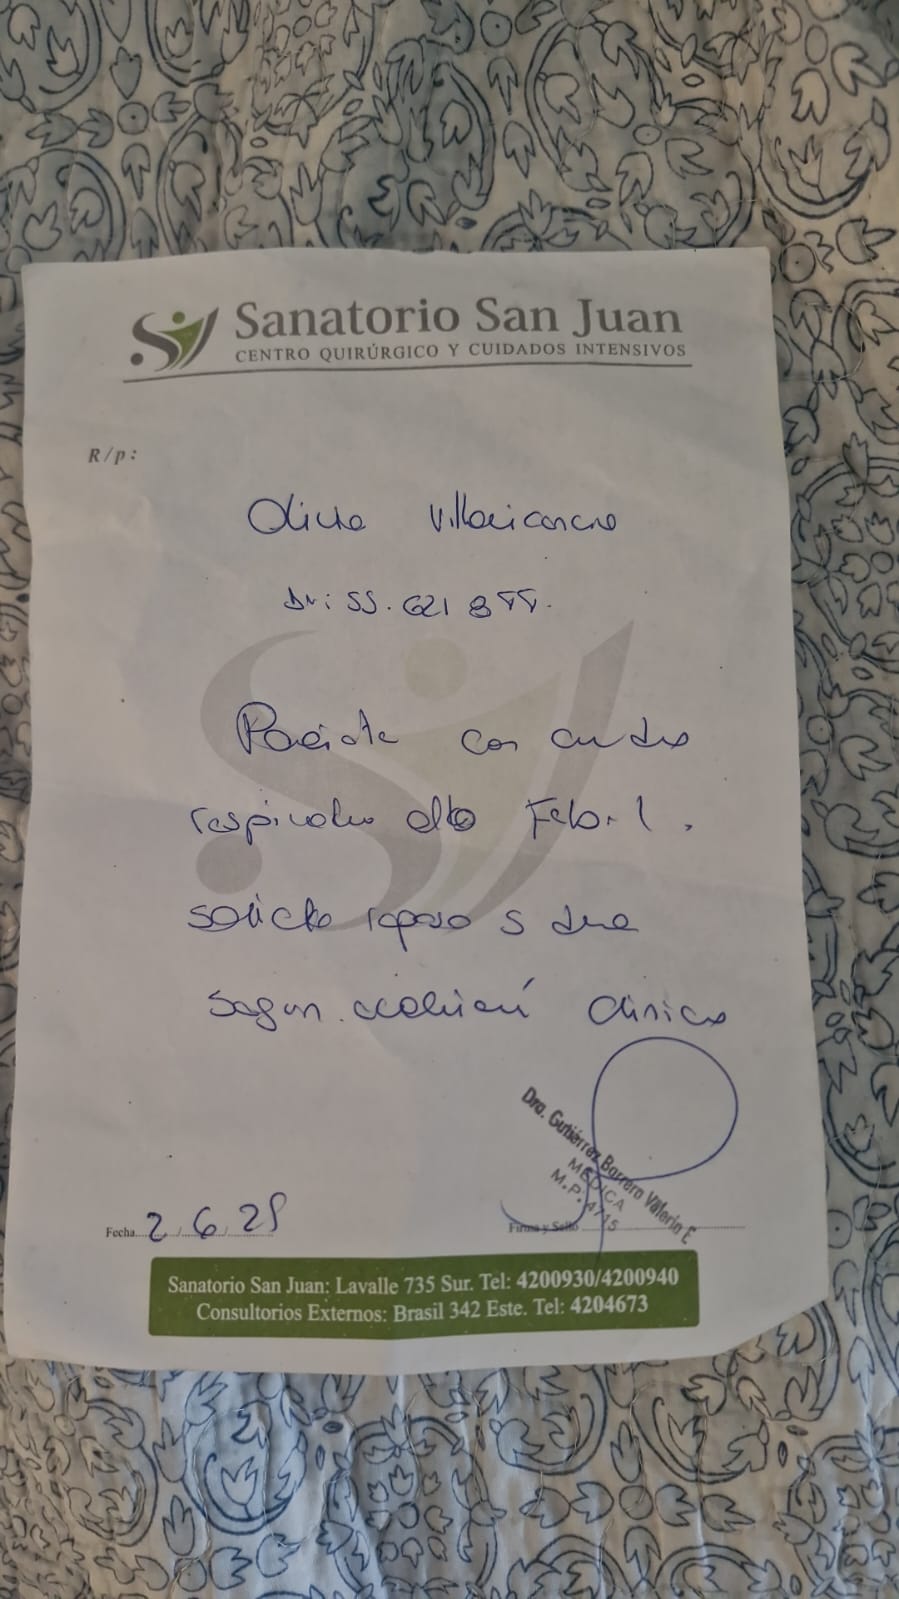 Sanatorio San Juan
CENTRO QUIRÚRGICO Y CUIDADOS INTENSIVOS
R/p:
Olivia
DNI: 55.621 899.
Paciente con cuadro
respiratorio alto Febril.
solicito reposo 5 dias
segun evolución clinica
Dra. Gutiérrez Barrera Valeria E
MÉDICA
M.P. 4715
Fecha 2/6/25
Firma y Sello
Sanatorio San Juan: Lavalle 735 Sur. Tel: 4200930/4200940
Consultorios Externos: Brasil 342 Este. Tel: 4204673